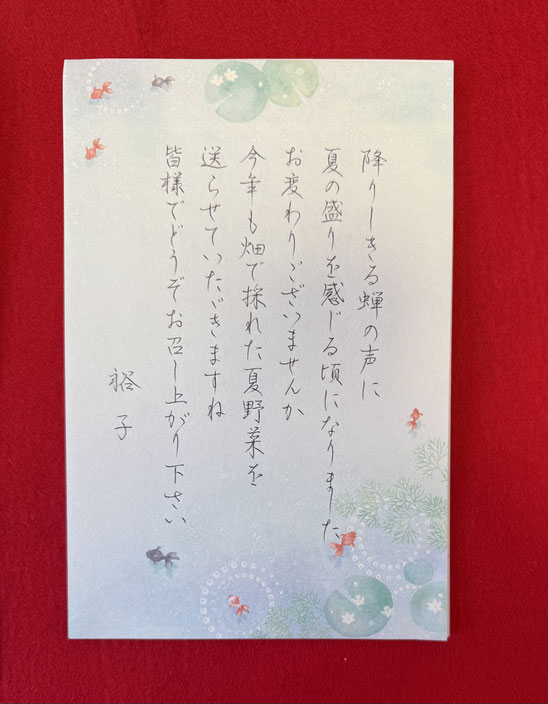 降りしきる蝉の声に
夏の盛りを感じる頃になりました
お変わりございませんか
今年も畑で採れた夏野菜を
送らせていただきますね
皆様でどうぞお召し上がり下さい
裕子